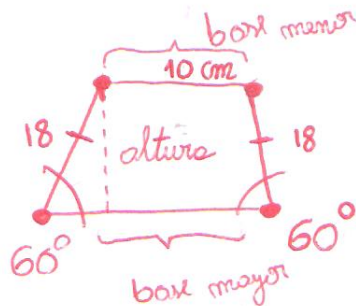 base menor
10 cm
18
altura
18
60°
60°
base mayor